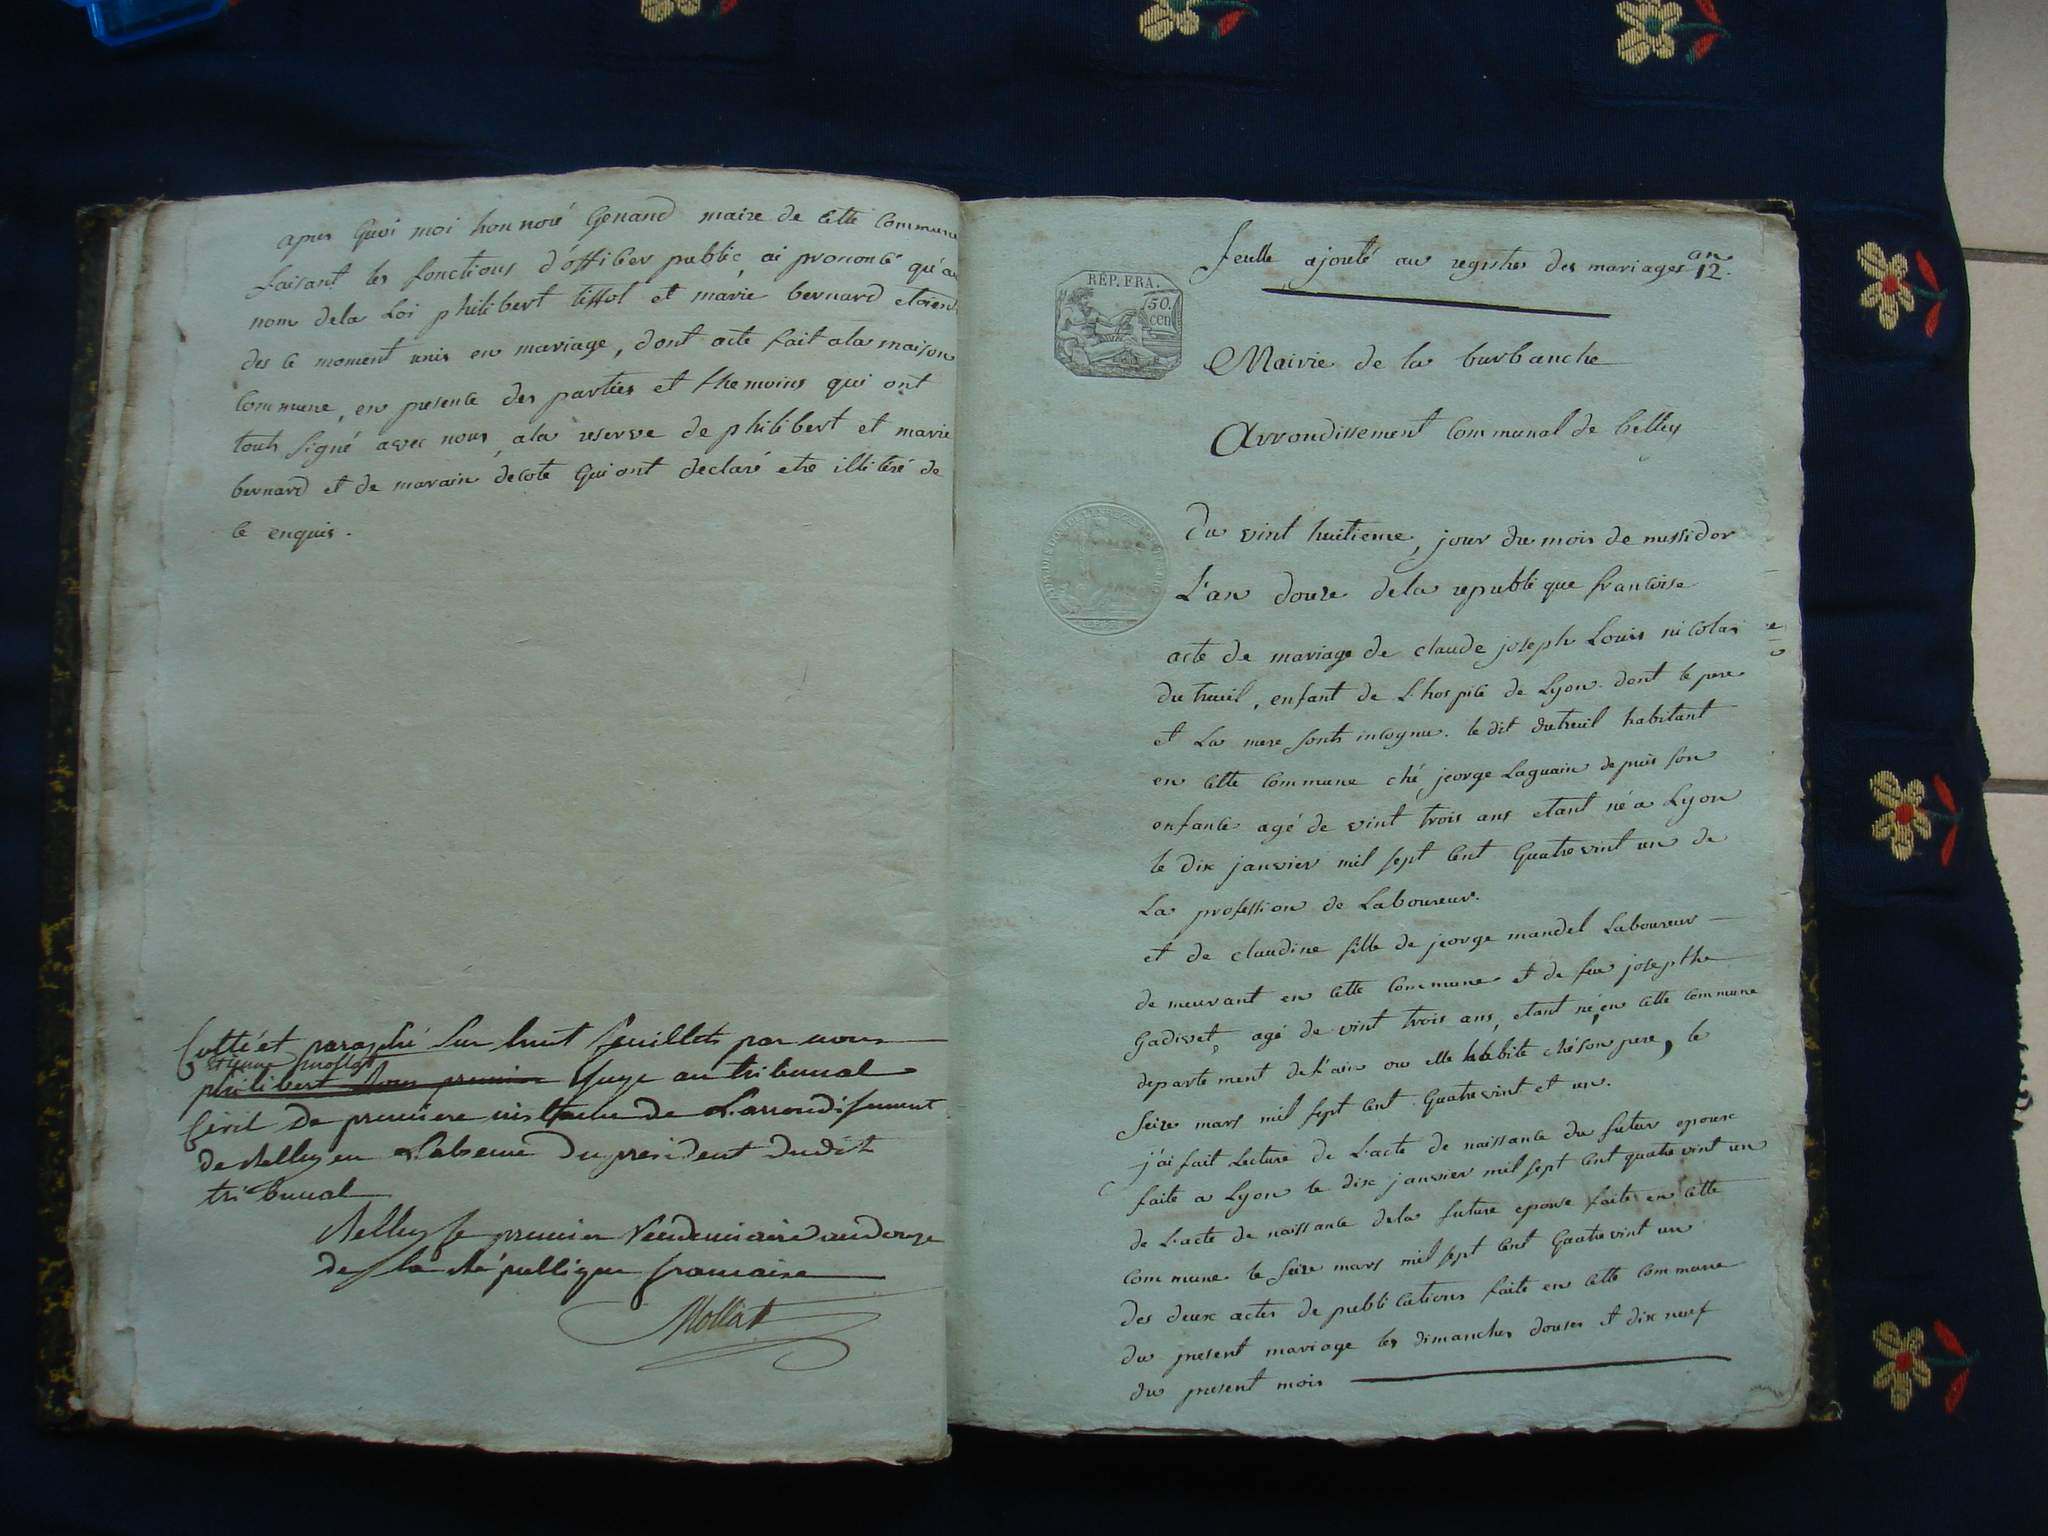 apres quoi moi honnoré Genand maire de cette commune
faisant les fonctions d'officier public, ai prononcé qu'au
nom dela Loi philibert tissot et marie bernard etoient
des ce moment unis en mariage, dont acte fait ala maison
commune, en presence des parties et themoins qui ont
touts signé avec nous, ala reserve de philibert et marie
bernard et de marain decote qui ont declaré etre illiteré de
ce enquis.
Cotté et paraphé sur huit feuillets par nous
etienne mollat
philibert juge au tribunal
Civil de premiere instance de L'arrondissement
de Belley en L'absence du president dudit
tribunal
Belley le premier Vendemiaire an douze
de la République francaise
Mollat
feulle ajouté au registre des mariages an 12.
RÉP. FRA.
50.
cen
Mairie de la burbanche
Arrondissement communal de belley
du vint huitieme, jour du mois de messidor
L'an douze dela republique francoise
acte de mariage de claude joseph Louis nicolas
dutreuil, enfant de L'hospice de Lyon. dont le pere
et La mere sonts incognu. le dit dutreuil habitant
en cette commune ché jeorge Laguain depuis son
enfance agé de vint trois ans etant né a Lyon
le dix janvier mil sept cent quatrevint un de
La profession de Laboureur.
et de claudine fille de jeorge mandel Laboureur
demeurant en cette commune et de feue josepthe
Gadivet, agé de vint trois ans, etant né, en cette commune
departement de l'ain ou elle habite ché son pere, le
seize mars mil sept cent quatrevint et un.
j'ai fait Lecture de L'acte de naissance du futur epoux
faite a Lyon le dix janvier mil sept cent quatrevint un
de L'acte de naissance dela future epouse faite en cette
commune le seize mars mil sept cent quatrevint un
des deux actes de publications faite en cette commune
du present mariage les dimanches douses et dix neuf
du present mois